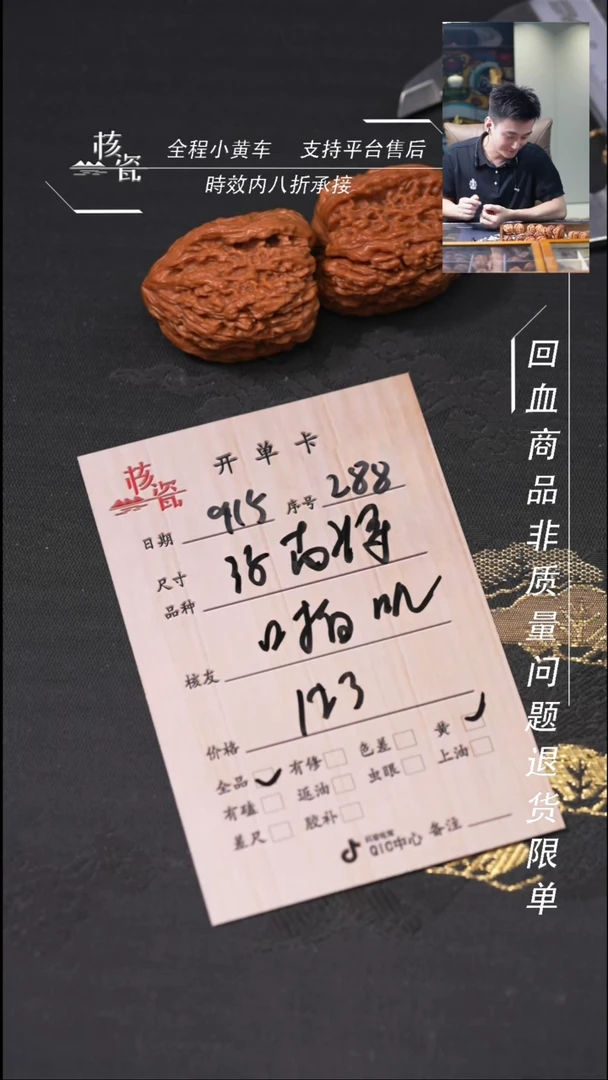 核瓷
全程小黄车 支持平台售后
時效内八折承接
回血商品非质量问题退货限单
核瓷
开单卡
日期 915 序号 288
尺寸
品种
核友
123
价格
全品 有修 色差 黄
有磕 返油 虫眼 上油
差尺 胶补
QIC中心 备注